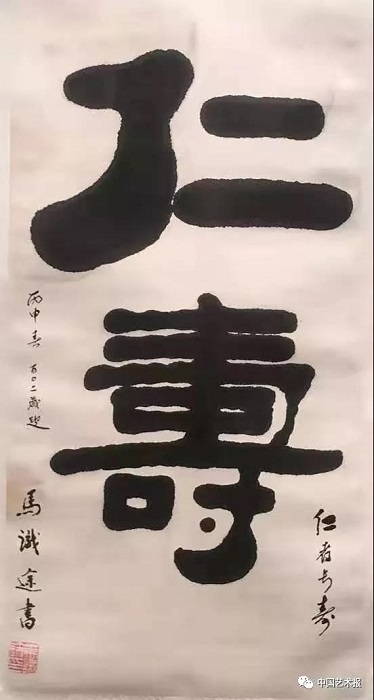 仁壽
仁者长寿
丙申春 百〇二歲叟
馬識途書
中国艺术报